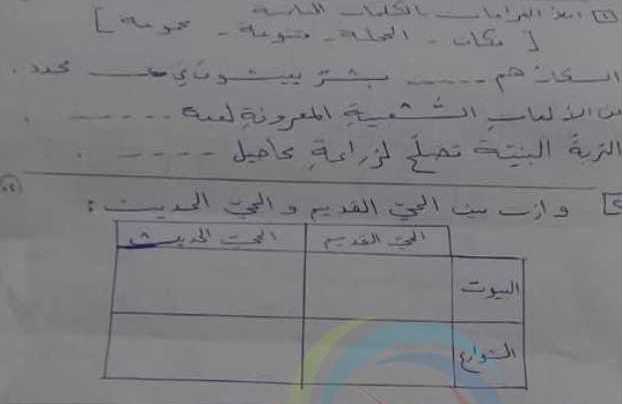 [1] املأ الفراغات بالكلمات المناسبة
[ مكان - المحلة - متنوعة - مجموعة ]
السكان هم ----- بشر يعيشون في ـــــ محدد .
من الألعاب الشعبية المعروفة لعبة ------ .
التربة البنية تصلح لزراعة محاصيل ----- .
[2] وازن بين الحي القديم و الحي الحديث :
الحي القديم الحي الحديث
البيوت
الشوارع